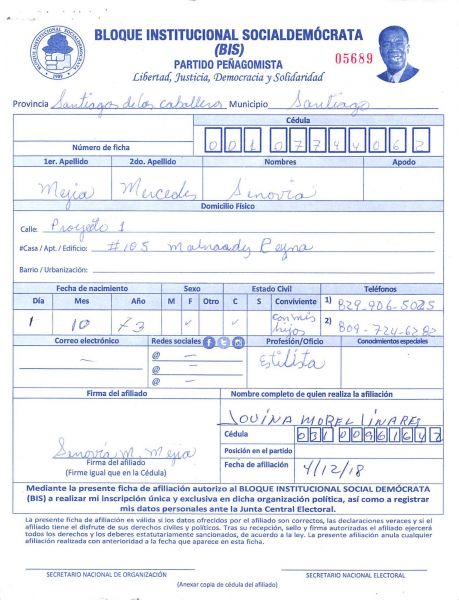 BLOQUE INSTITUCIONAL SOCIALDEMÓCRATA
(BIS)
PARTIDO PEÑAGOMISTA
Libertad, Justicia, Democracia y Solidaridad
05689
Provincia Santiagos de los caballeros Municipio Santiago
Número de ficha Cédula
001 0774406 2
1er. Apellido 2do. Apellido Nombres Apodo
Mejia Mercedes Senovia
Domicilio Físico
Calle: Proyecto 1
#Casa / Apt. / Edificio: #105
Barrio / Urbanización:
Fecha de nacimiento Sexo Estado Civil Teléfonos
Día Mes Año M F Otro C S Conviviente
1) 829-906-5085
1 10 73 ✓ ✓ con mis hijos
2) 809-724-6282
Correo electrónico Redes sociales Profesión/Oficio Conocimientos especiales
@ —
@ —
@ —
Estilista
Firma del afiliado Nombre completo de quien realiza la afiliación
MOREL LINARES
Cédula 031 0096164 7
Senovia M. Mejia
Posición en el partido
Firma del afiliado
(Firme igual que en la Cédula)
Fecha de afiliación 4/12/18
Mediante la presente ficha de afiliación autorizo al BLOQUE INSTITUCIONAL SOCIAL DEMÓCRATA
(BIS) a realizar mi inscripción única y exclusiva en dicha organización política, así como a registrar
mis datos personales ante la Junta Central Electoral.
La presente ficha de afiliación es válida si los datos ofrecidos por el afiliado son correctos, las declaraciones veraces y si el
afiliado tiene el disfrute de sus derechos civiles y políticos. Tras su recepción, sello y firma autorizadas el afiliado ejercerá
todos los derechos y los deberes estatutariamente sancionados, de acuerdo a la ley. La presente afiliación anula cualquier
afiliación realizada con anterioridad a la fecha que aparece en esta ficha.
SECRETARIO NACIONAL DE ORGANIZACIÓN SECRETARIO NACIONAL ELECTORAL
(Anexar copia de cédula del afiliado)